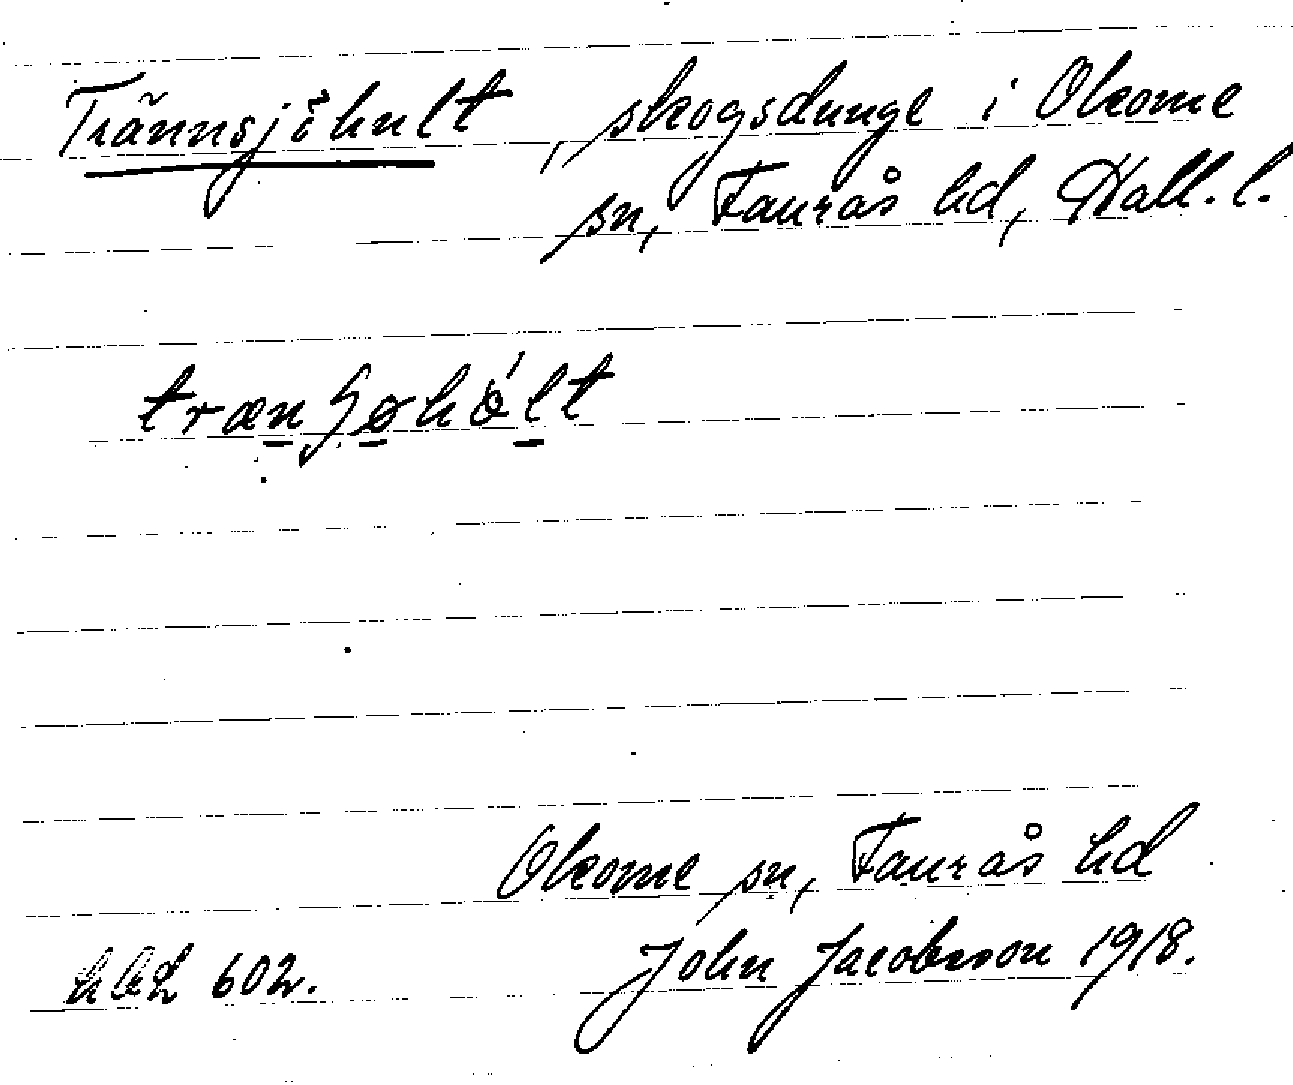 Trännsjöhult, skogsdunge i Okome
sn, Faurås hd, Hall. l.
Okome sn, Faurås hd
602. John Jacobsson 1918.